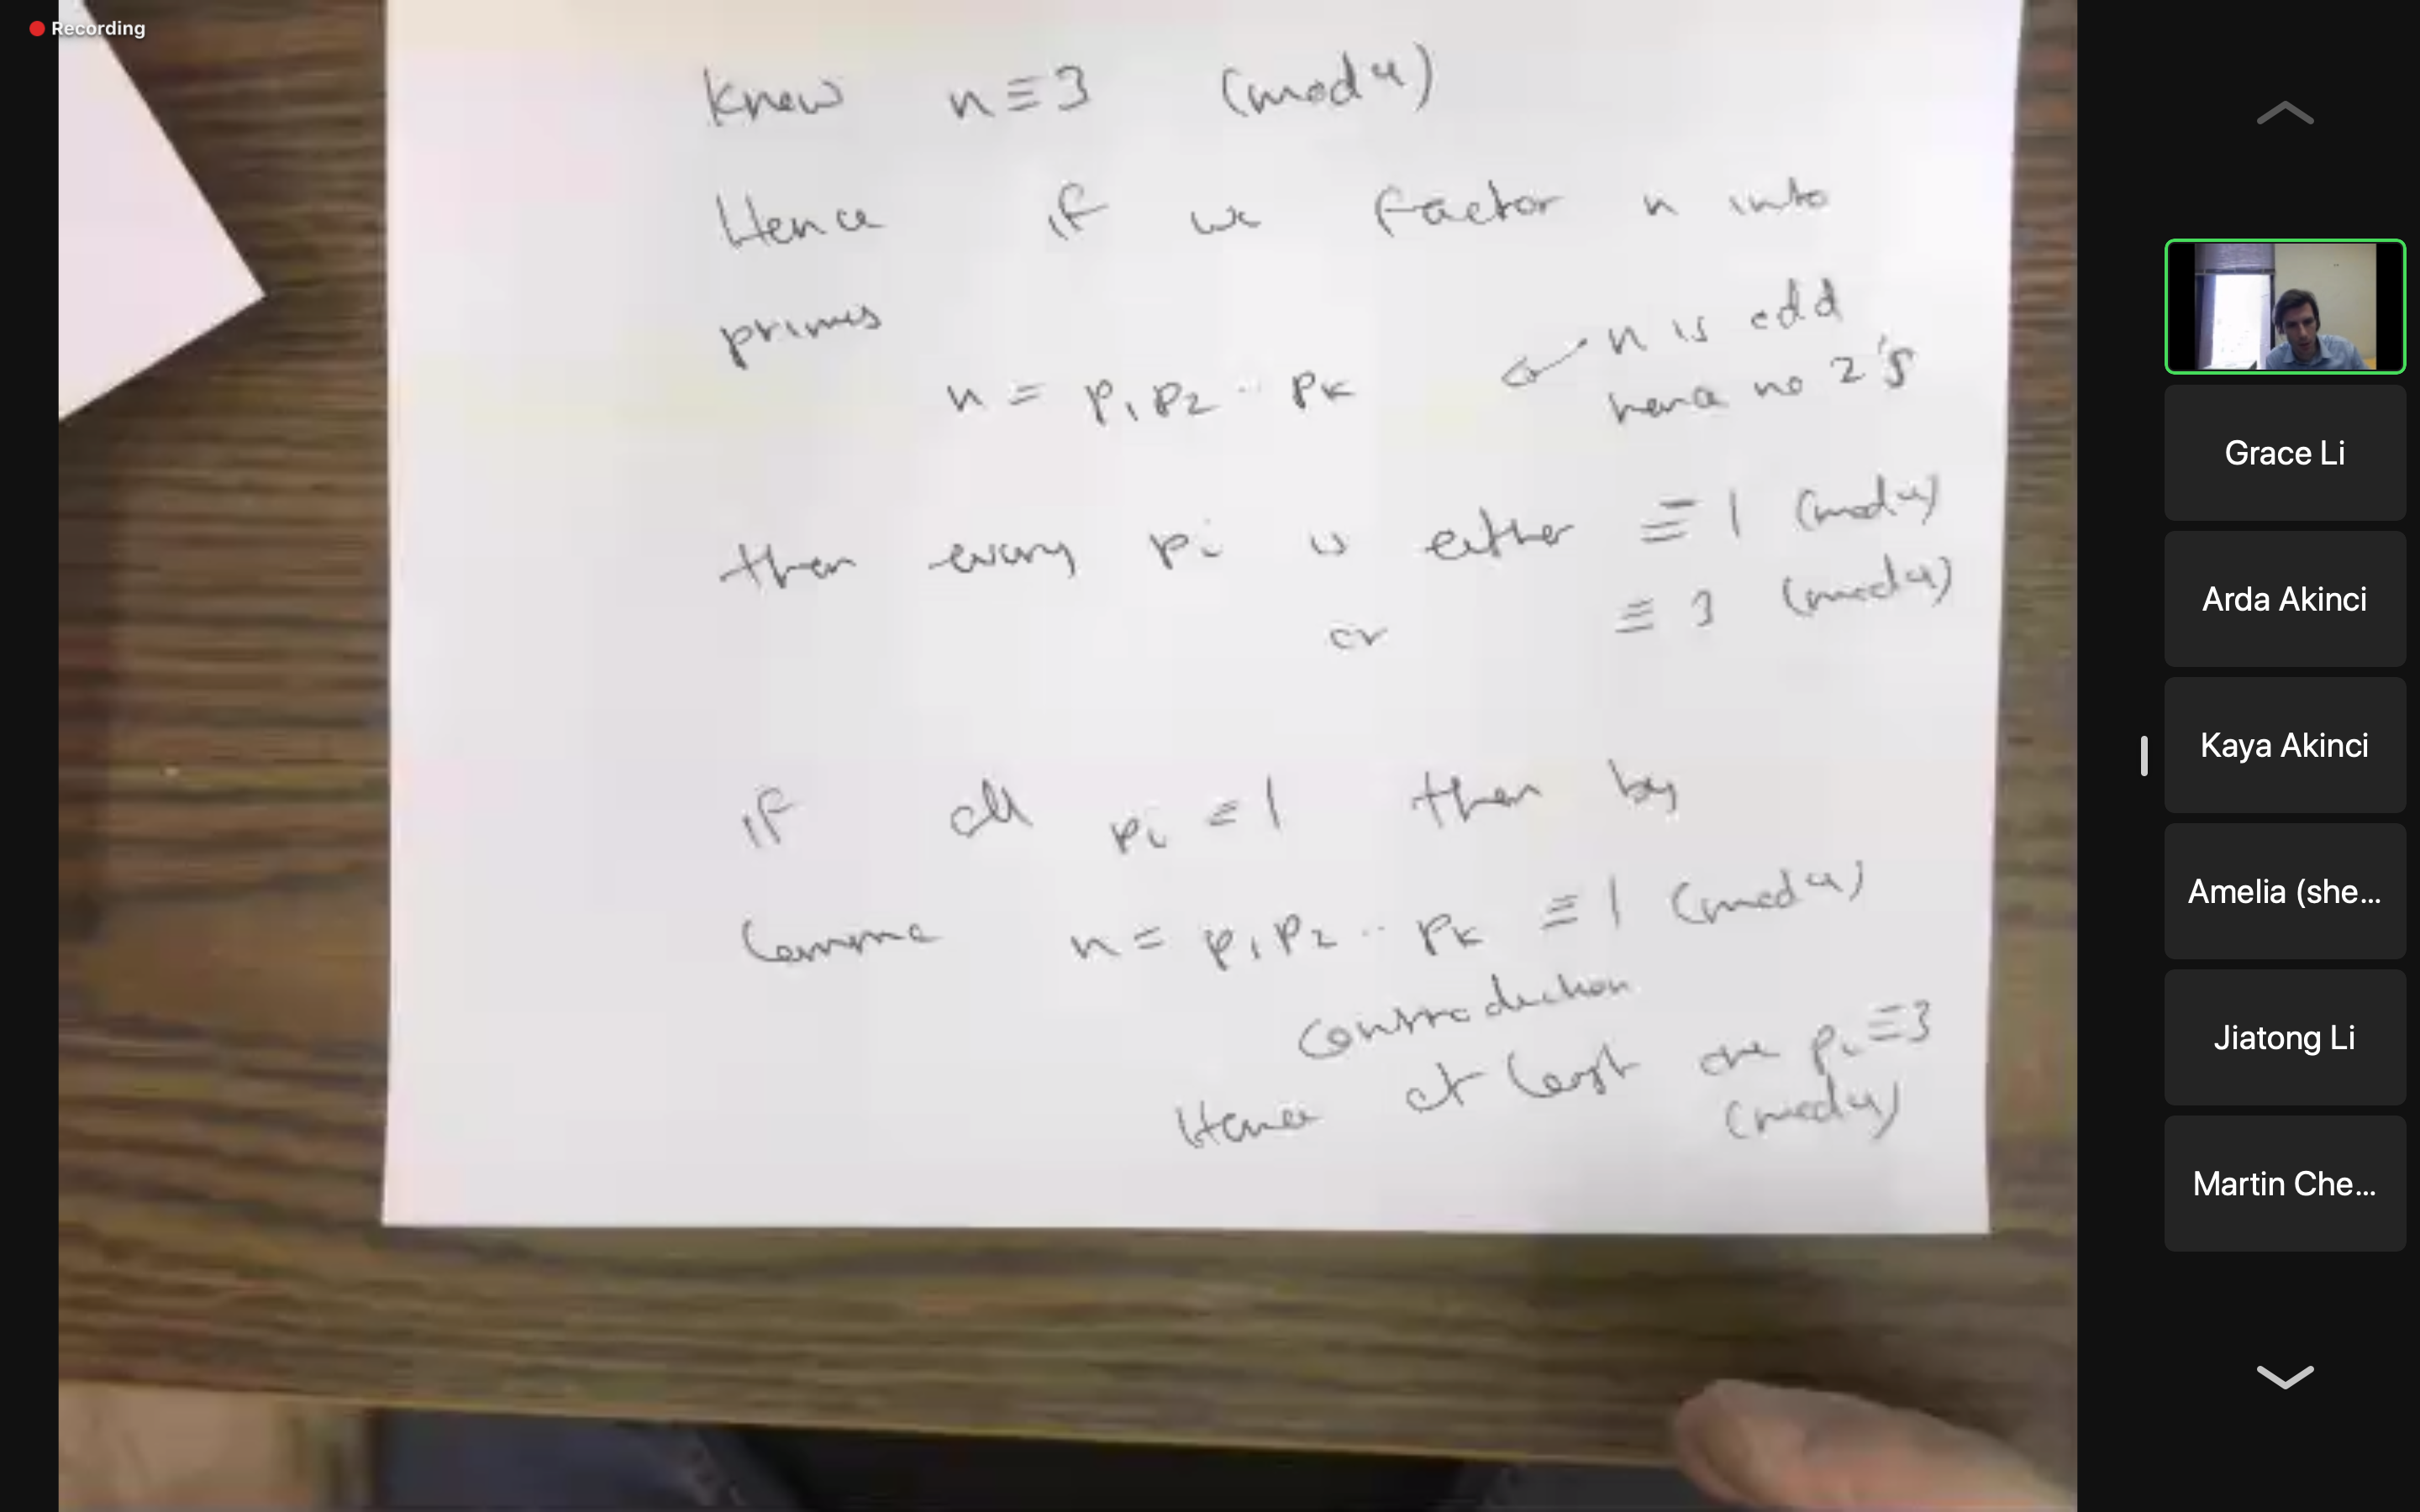 Recording
know n ≡ 3 (mod 4)
Hence if we factor n into
primes
n = p₁ p₂ ·· pₖ
n is odd
hence no 2's
then every pᵢ is either ≡ 1 (mod 4)
or ≡ 3 (mod 4)
if all pᵢ ≡ 1 then by
Lemma n = p₁ p₂ ·· pₖ ≡ 1 (mod 4)
Contradiction
Hence at least one pᵢ ≡ 3
(mod 4)
Grace Li
Arda Akinci
Kaya Akinci
Amelia (she...
Jiatong Li
Martin Che...